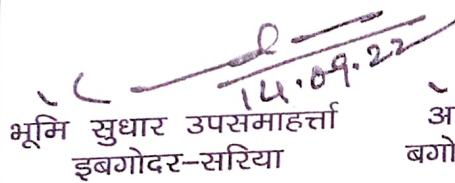 14.09.22
भूमि सुधार उपसमाहर्त्ता
इबगोदर-सरिया